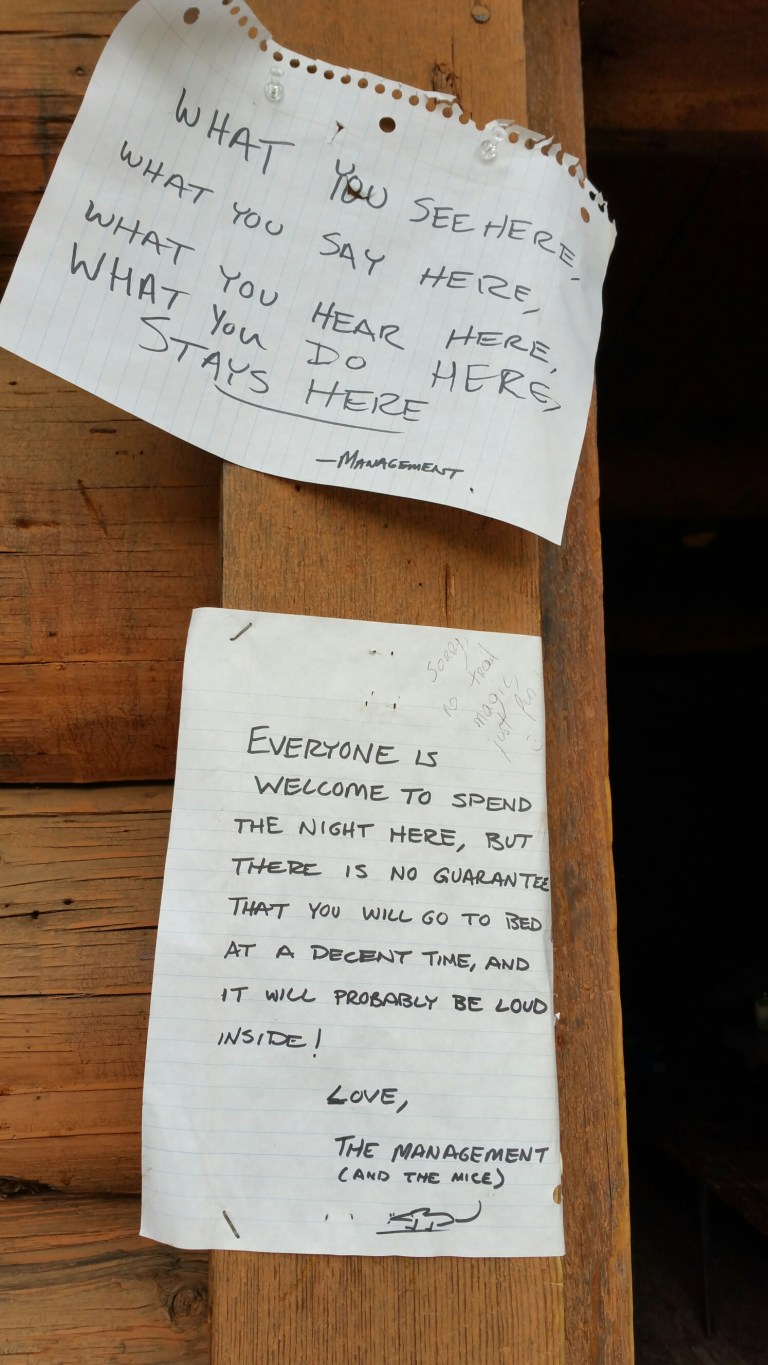 WHAT YOU SEE HERE,
WHAT YOU SAY HERE,
WHAT YOU HEAR HERE,
WHAT YOU DO HERE,
STAYS HERE
—MANAGEMENT.
Sorry
no trail
magic,
just
EVERYONE IS
WELCOME TO SPEND
THE NIGHT HERE, BUT
THERE IS NO GUARANTEE
THAT YOU WILL GO TO BED
AT A DECENT TIME, AND
IT WILL PROBABLY BE LOUD
INSIDE!
LOVE,
THE MANAGEMENT
(AND THE MICE)